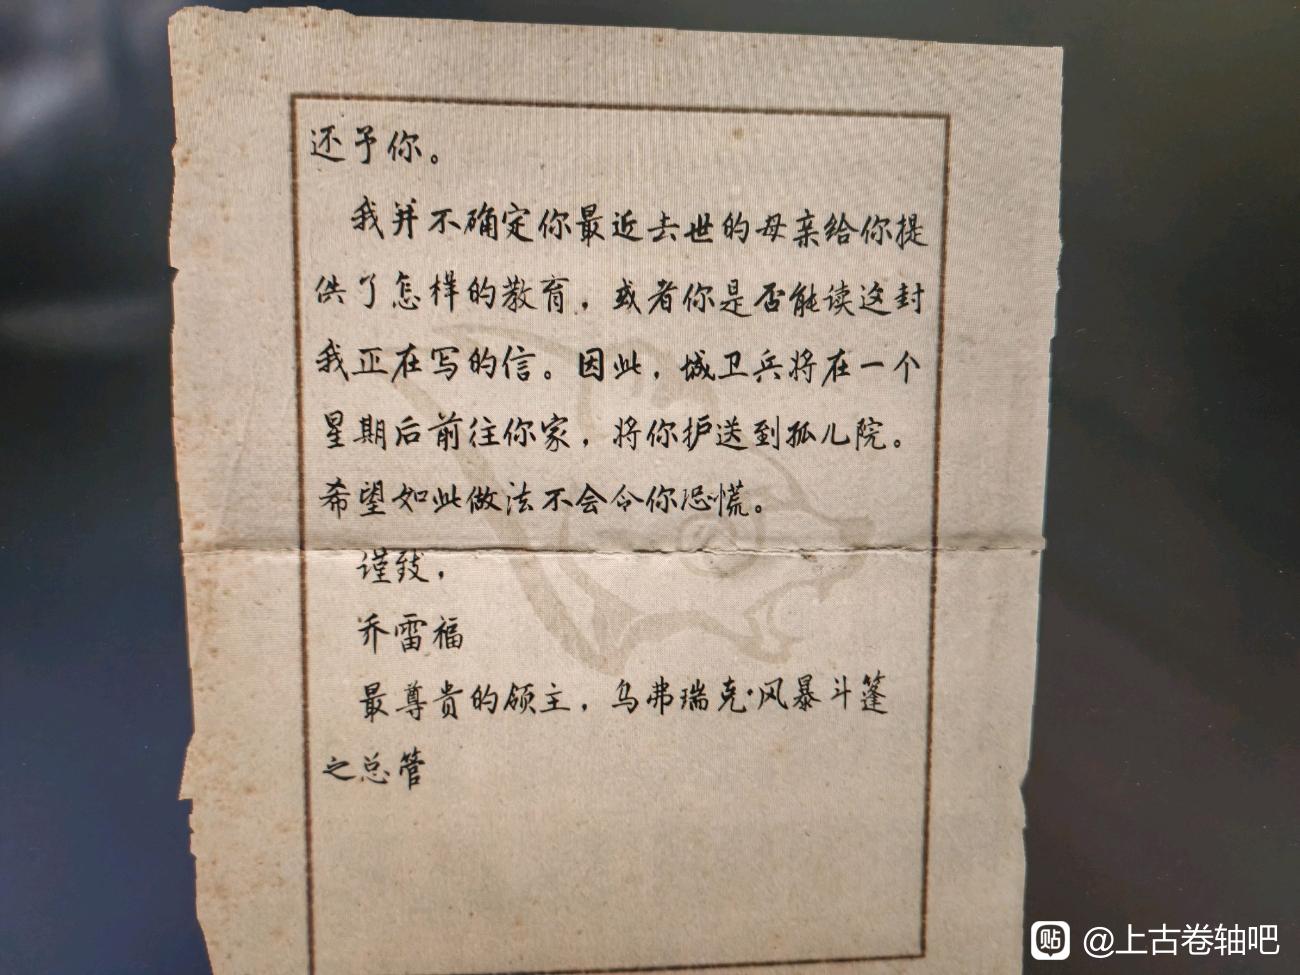 还予你。
我并不确定你最近去世的母亲给你提
供了怎样的教育，或者你是否能读这封
我正在写的信。因此，城卫兵将在一个
星期后前往你家，将你护送到孤儿院。
希望如此做法不会令你恐慌。
谨致，
乔雷福
最尊贵的领主，乌弗瑞克·风暴斗篷
之总管
贴 @上古卷轴吧